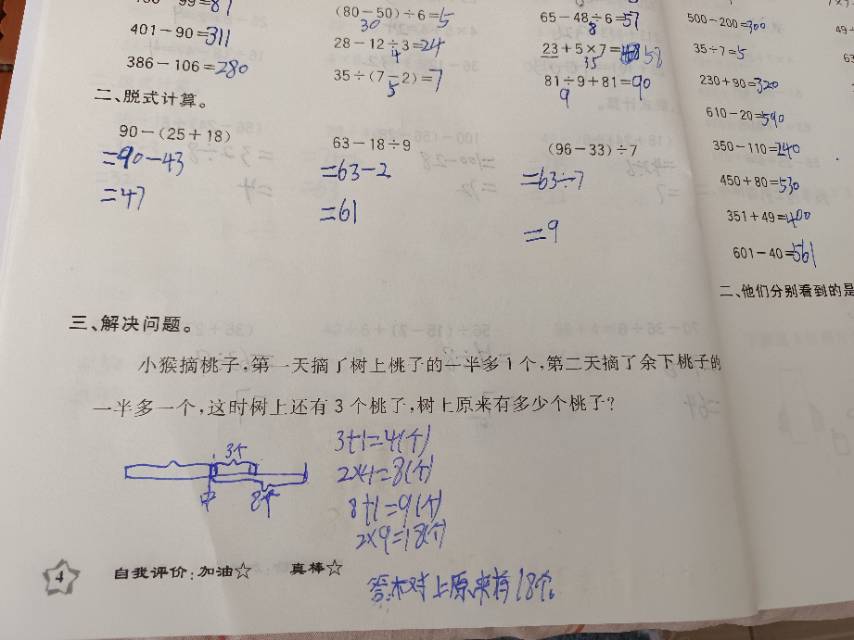 99=81
(80－50)÷6=5
30
65－48÷6=57
8
500－200=300
401－90=311
28－12÷3=24
4
23＋5×7=58
35
35÷7=5
386－106=280
35÷(7－2)=7
5
81÷9＋81=90
9
230＋90=320
610－20=590
二、脱式计算。
90－(25＋18)
63－18÷9
(96－33)÷7
350－110=240
=90－43
=63－2
=63÷7
450＋80=530
=47
=61
=9
351＋49=400
601－40=561
二、他们分别看到的是
三、解决问题。
小猴摘桃子,第一天摘了树上桃子的一半多1个,第二天摘了余下桃子的
一半多一个,这时树上还有3个桃子,树上原来有多少个桃子?
3个
8个
3+1=4(个)
2×4=8(个)
8+1=9(个)
2×9=18(个)
答:树上原来有18个。
4
自我评价:加油☆ 真棒☆